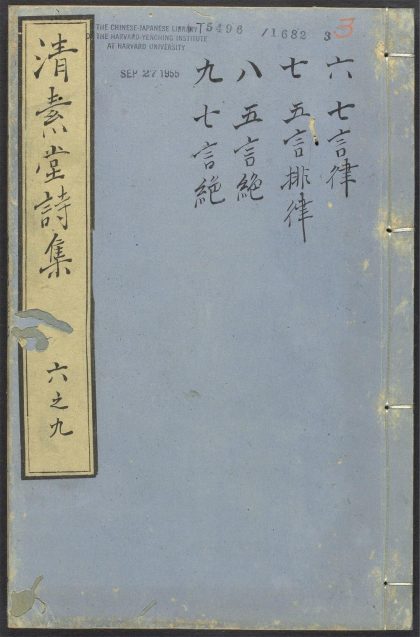 THE CHINESE-JAPANESE LIBRARY
OF THE HARVARD-YENCHING INSTITUTE
AT HARVARD UNIVERSITY
SEP 27 1955
T5496 /1682 3
3
六 七言律
七 五言排律
八 五言絕
九 七言絕
清素堂詩集
六之九